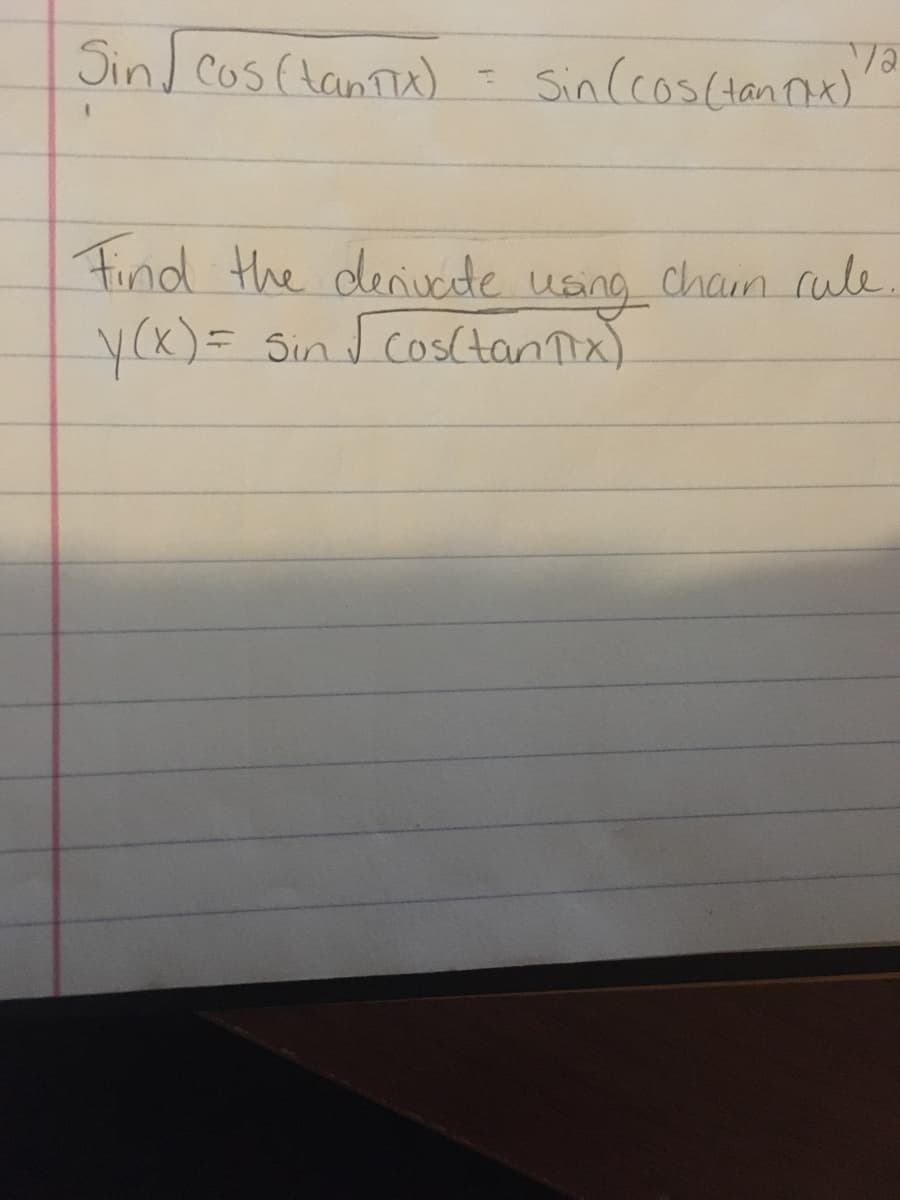 Sin√cos(tanπx) = Sin(cos(tanπx)^1/2
Find the derivate using chain rule.
y(x)= sin√cos(tanπx)